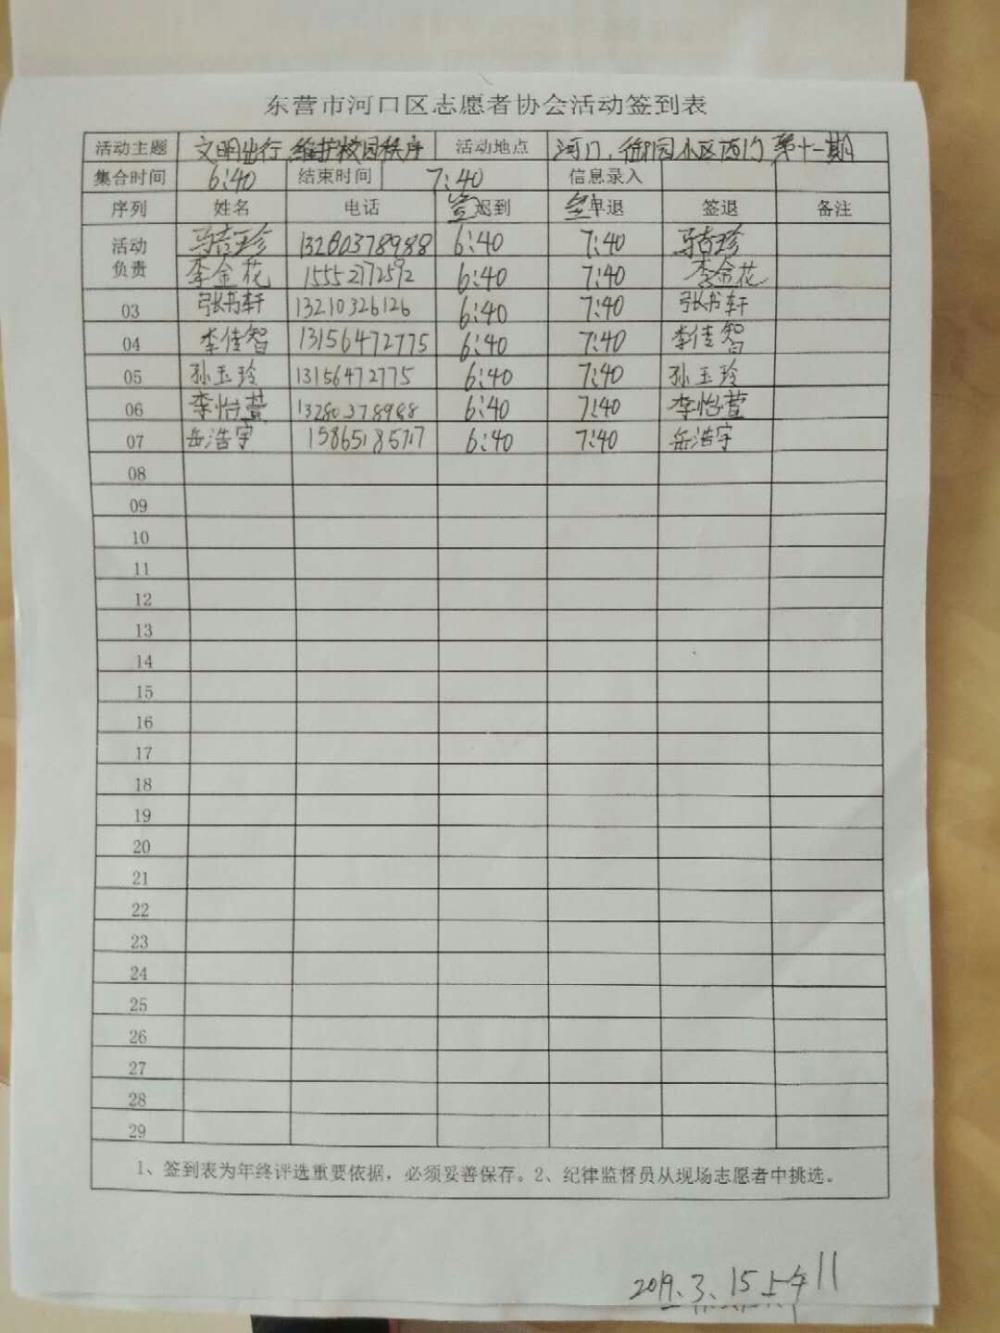 东营市河口区志愿者协会活动签到表
活动主题 文明出行 维护校园秩序 活动地点 河口,御园小区西门 第十一期
集合时间 6:40 结束时间 7:40 信息录入
序列 姓名 电话 签到 签退 签退 备注
活动负责 马吉珍 13280378988 6:40 7:40 马吉珍
李金花 15552172592 6:40 7:40 李金花
03 张书轩 13210326126 6:40 7:40 张书轩
04 李佳智 13156472775 6:40 7:40 李佳智
05 孙玉玲 13156472775 6:40 7:40 孙玉玲
06 李怡萱 13280378988 6:40 7:40 李怡萱
07 岳浩宇 15865185717 6:40 7:40 岳浩宇
08
09
10
11
12
13
14
15
16
17
18
19
20
21
22
23
24
25
26
27
28
29
1、签到表为年终评选重要依据，必须妥善保存。2、纪律监督员从现场志愿者中挑选。
2019.3.15上午11